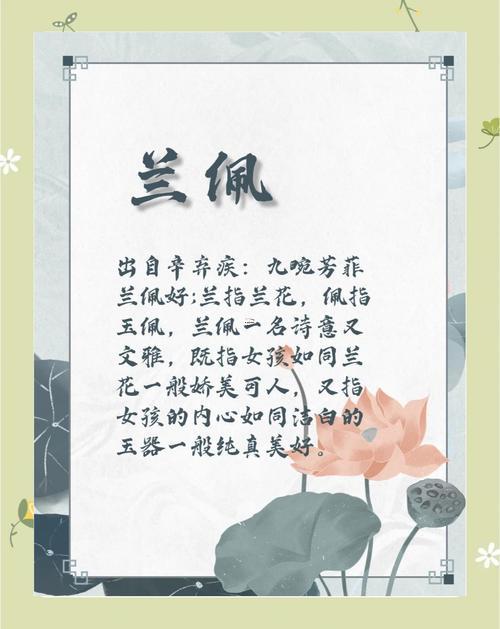 兰佩
出自辛弃疾：九畹芳菲
兰佩好;兰指兰花，佩指
玉佩，兰佩一名诗意又
文雅，既指女孩如同兰
花一般娇美可人，又指
女孩的内心如同洁白的
玉器一般纯真美好。